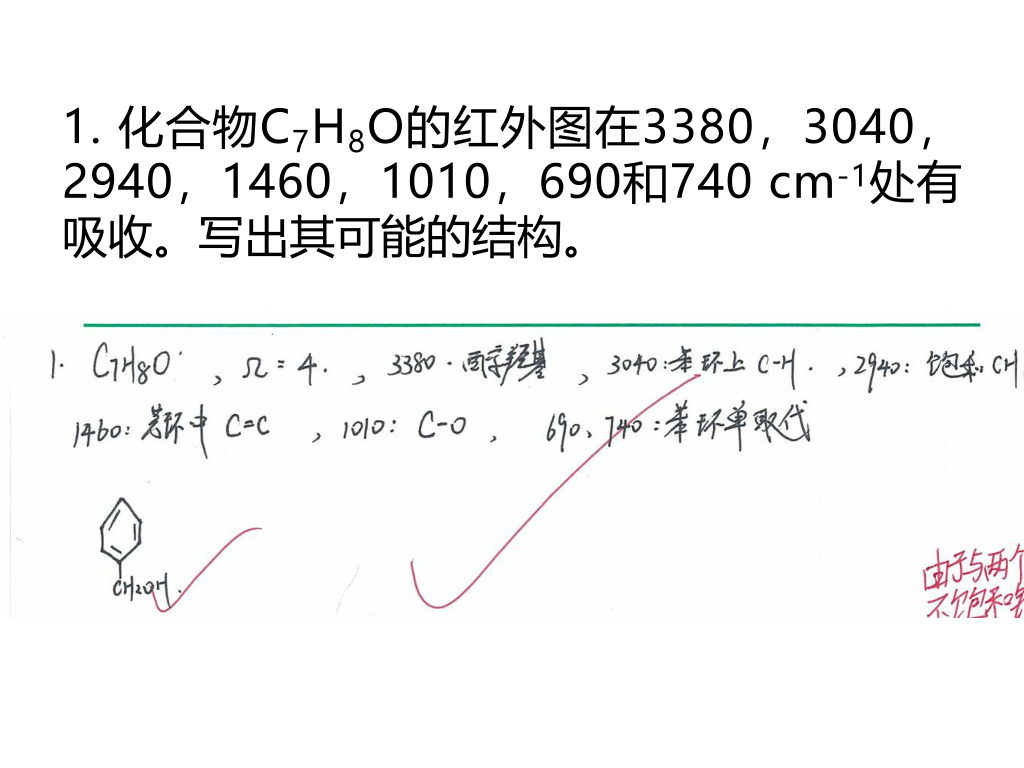 1. 化合物C₇H₈O的红外图在3380，3040，
2940，1460，1010，690和740 cm⁻¹处有
吸收。写出其可能的结构。
1. C7H8O , Ω=4. , 3380·酉字羟基 , 3040:苯环上 C-H. ,2940: 饱和 CH
1460:苯环中 C=C , 1010: C-O , 690、740:苯环单取代
CH2OH.
由于与两个
不饱和